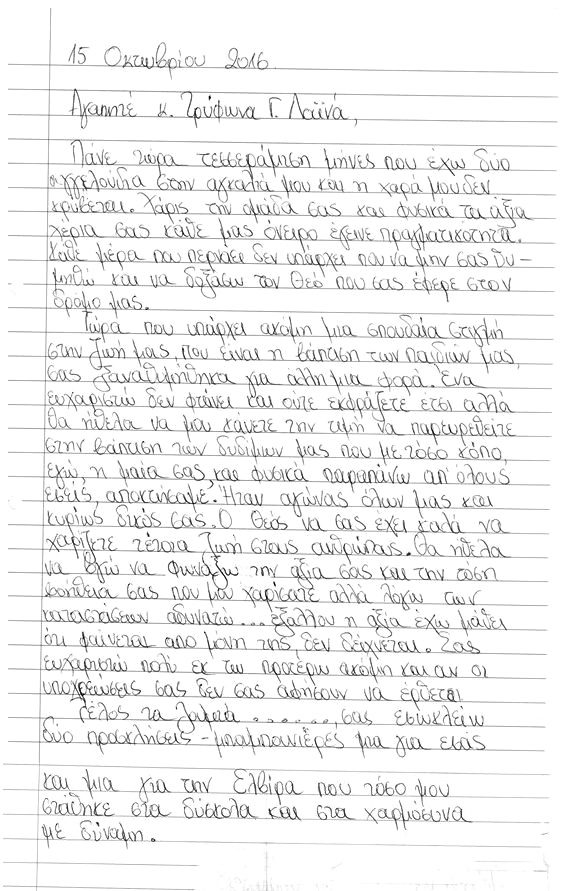 15 Οκτωβρίου 2016
Αγαπητέ κ. Τρύφωνα Γ. Λαϊνά,
Πάνε τώρα τεσσεράμηση μήνες που έχω δύο
αγγελούδια στην αγκαλιά μου και η χαρά μου δεν
κρύβεται. Χάρις την ομάδα σας και φυσικά τα άξια
χέρια σας κάθε μας όνειρο έγινε πραγματικότητα.
Κάθε μέρα που περνάει δεν υπάρχει που να μην σας θυ-
μηθώ και να δοξάσω τον Θεό που σας έφερε στον
δρόμο μας.
Τώρα που υπάρχει ακόμη μια σπουδαία στιγμή
στην ζωή μας, που είναι η βάπτιση των παιδιών μας,
σας ξαναθυμήθηκα για άλλη μια φορά. Ένα
ευχαριστώ δεν φτάνει και ούτε εκφράζετε έτσι αλλά
θα ήθελα να μου κάνετε την τιμή να παρευρεθείτε
στην βάπτιση των διδύμων μας που με τόσο κόπο,
εγώ, η μαία σας, και φυσικά παραπάνω απ' όλους
εσείς, αποκτήσαμε. Ήταν αγώνας όλων μας και
κυρίως δικός σας. Ο Θεός να σας έχει καλά να
χαρίζετε τέτοια ζωή στους ανθρώπους. Θα ήθελα
να βγώ να φωνάξω την αξία σας και την τόση
βοήθεια σας που μου χαρίσατε αλλά λόγω των
καταστάσεων αδυνατώ... εξάλλου η αξία έχω μάθει
ότι φαίνεται απο μόνη της, δεν δείχνεται. Σας
ευχαριστώ πολύ εκ των προτέρω ακόμη και αν οι
υποχρεώσεις σας δεν σας αφήσουν να έρθετε.
Τέλος τα ........, σας εσωκλείω
δύο προσκλήσεις - μπομπονιέρες μια για εσάς
και μια για την Ελβίρα που τόσο μου
στάθηκε στα δύσκολα και στα χαρμόσυνα
με δύναμη.